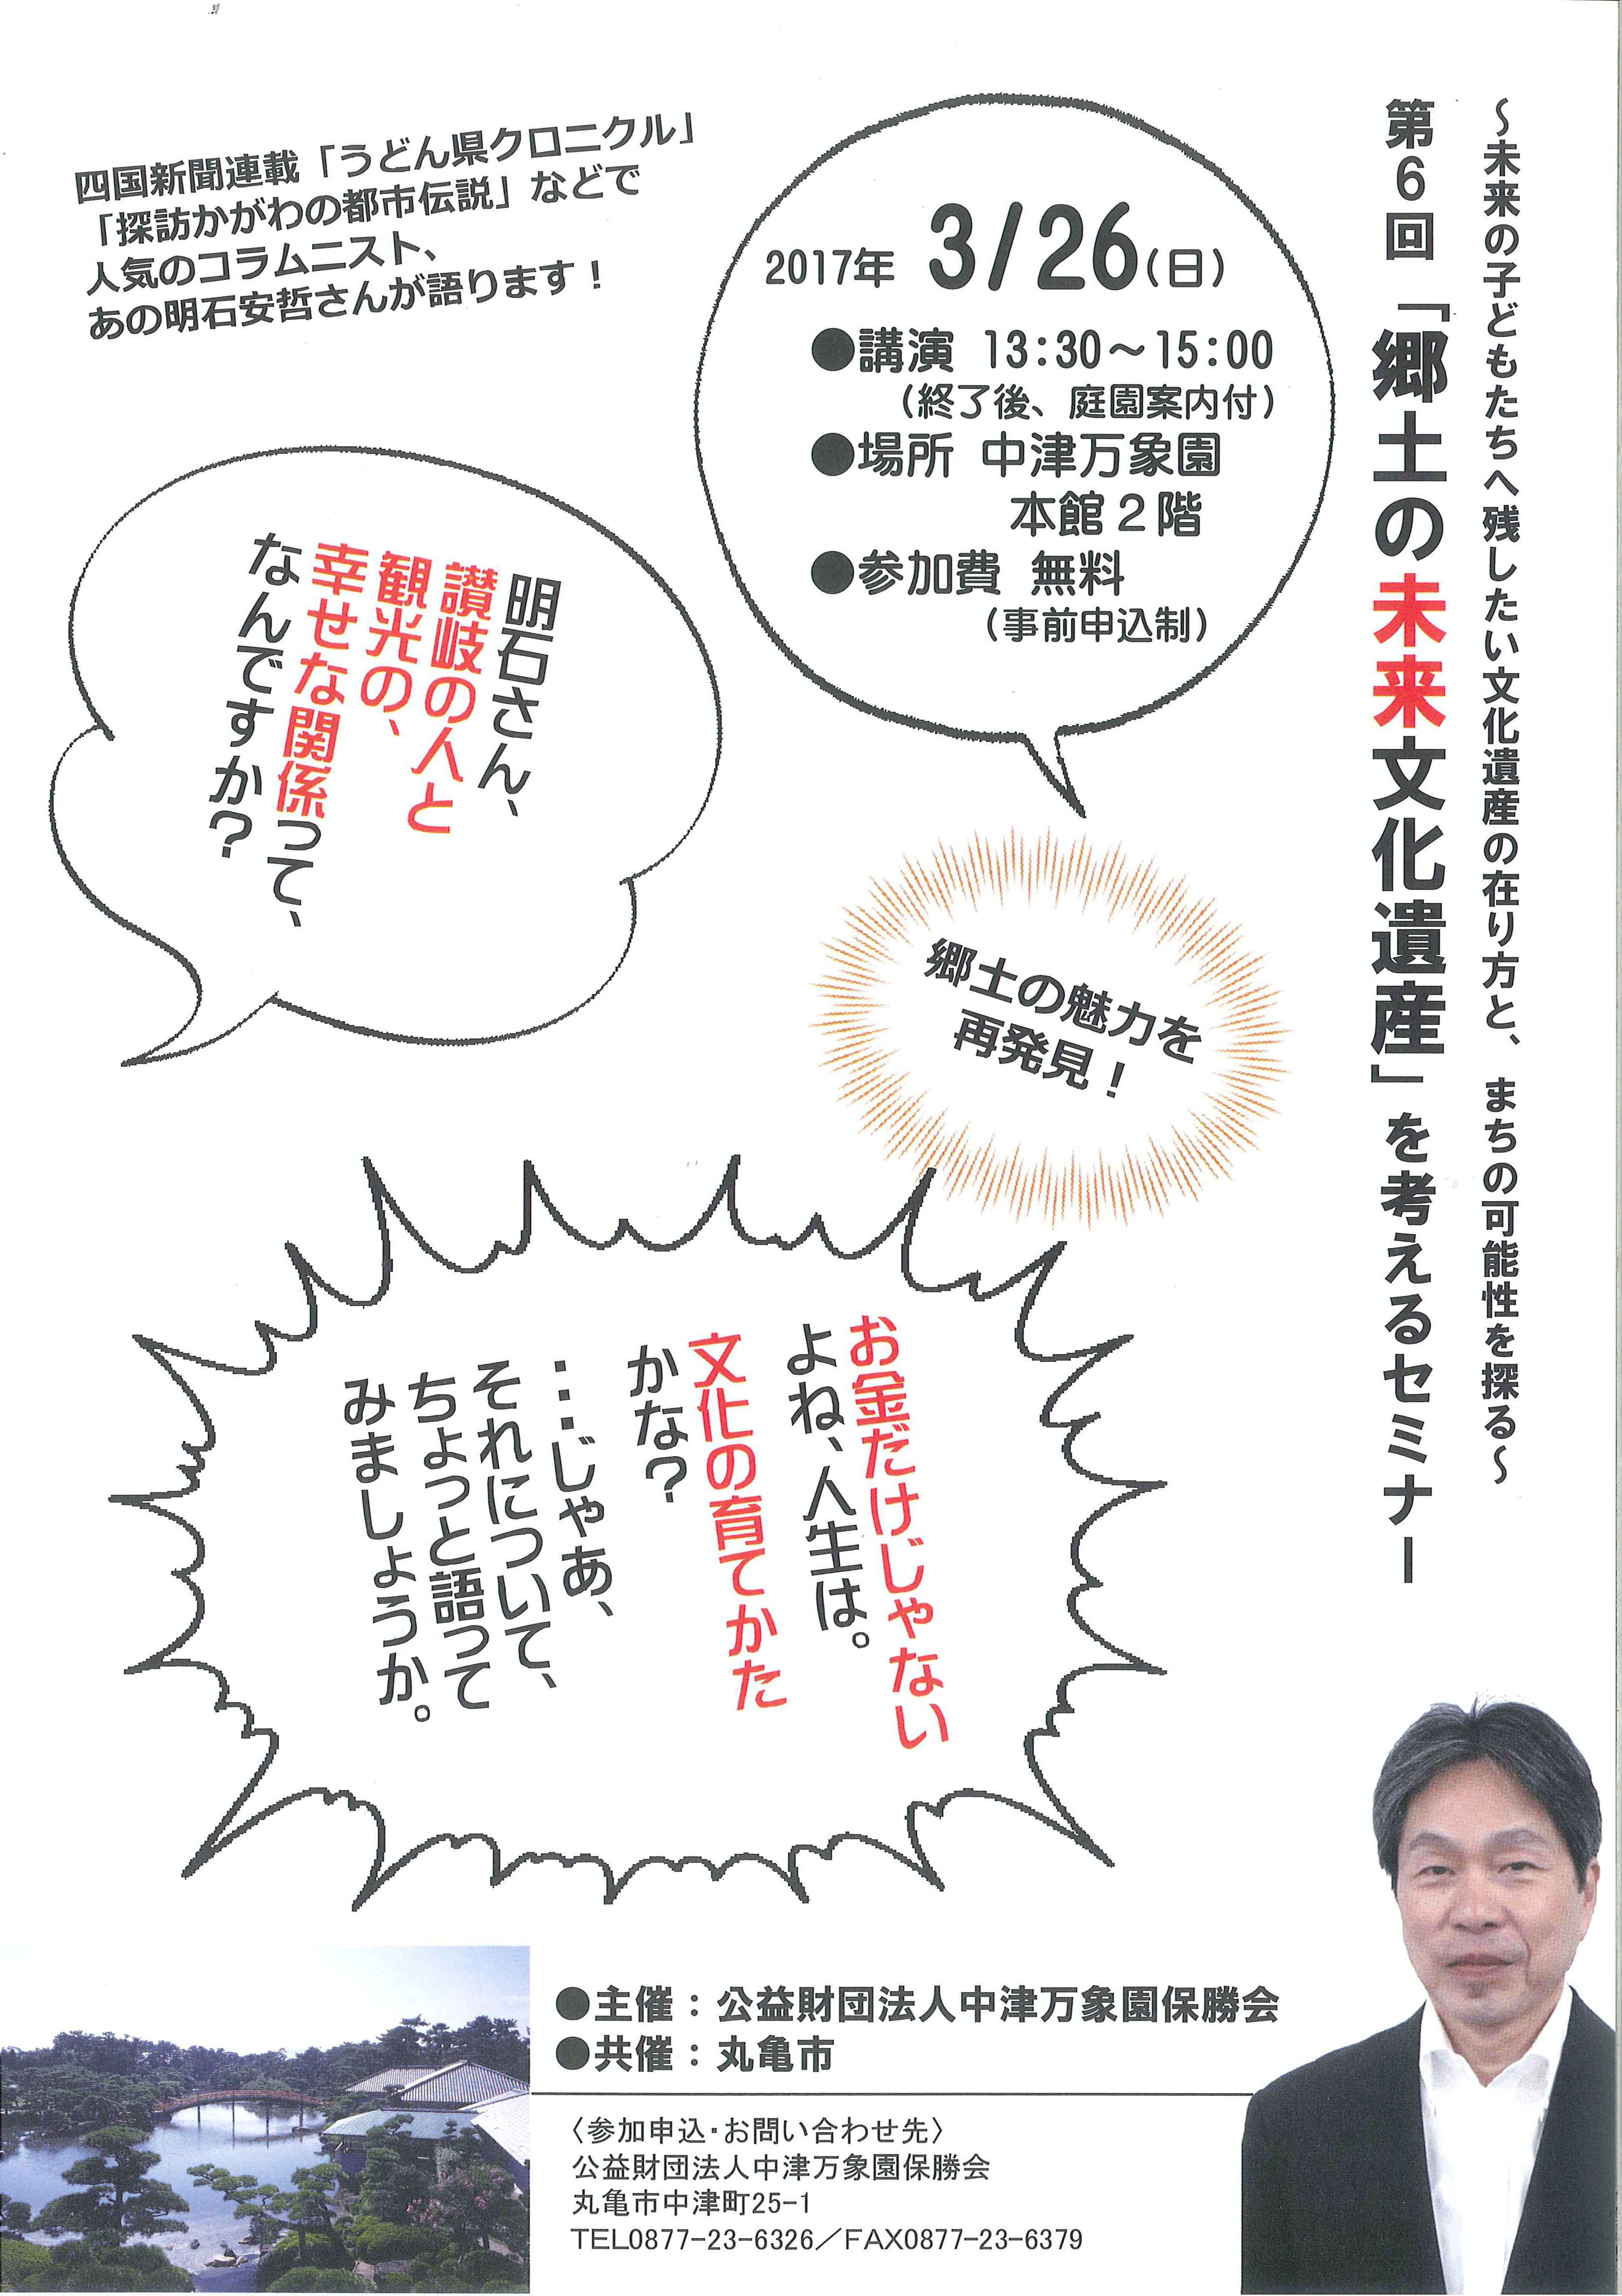 ～未来の子どもたちへ残したい文化遺産の在り方と、まちの可能性を探る～
第6回「郷土の未来文化遺産」を考えるセミナー
四国新聞連載「うどん県クロニクル」
「探訪かがわの都市伝説」などで
人気のコラムニスト、
あの明石安哲さんが語ります！
2017年 3/26(日)
●講演 13:30～15:00
（終了後、庭園案内付）
●場所 中津万象園
本館2階
●参加費 無料
（事前申込制）
明石さん、
讃岐の人と
観光の、
幸せな関係って、
なんですか？
郷土の魅力を
再発見！
お金だけじゃない
よね、人生は。
文化の育てかた
かな？
…じゃあ、
それについて、
ちょっと語って
みましょうか。
●主催：公益財団法人中津万象園保勝会
●共催：丸亀市
〈参加申込・お問い合わせ先〉
公益財団法人中津万象園保勝会
丸亀市中津町25-1
TEL0877-23-6326／FAX0877-23-6379